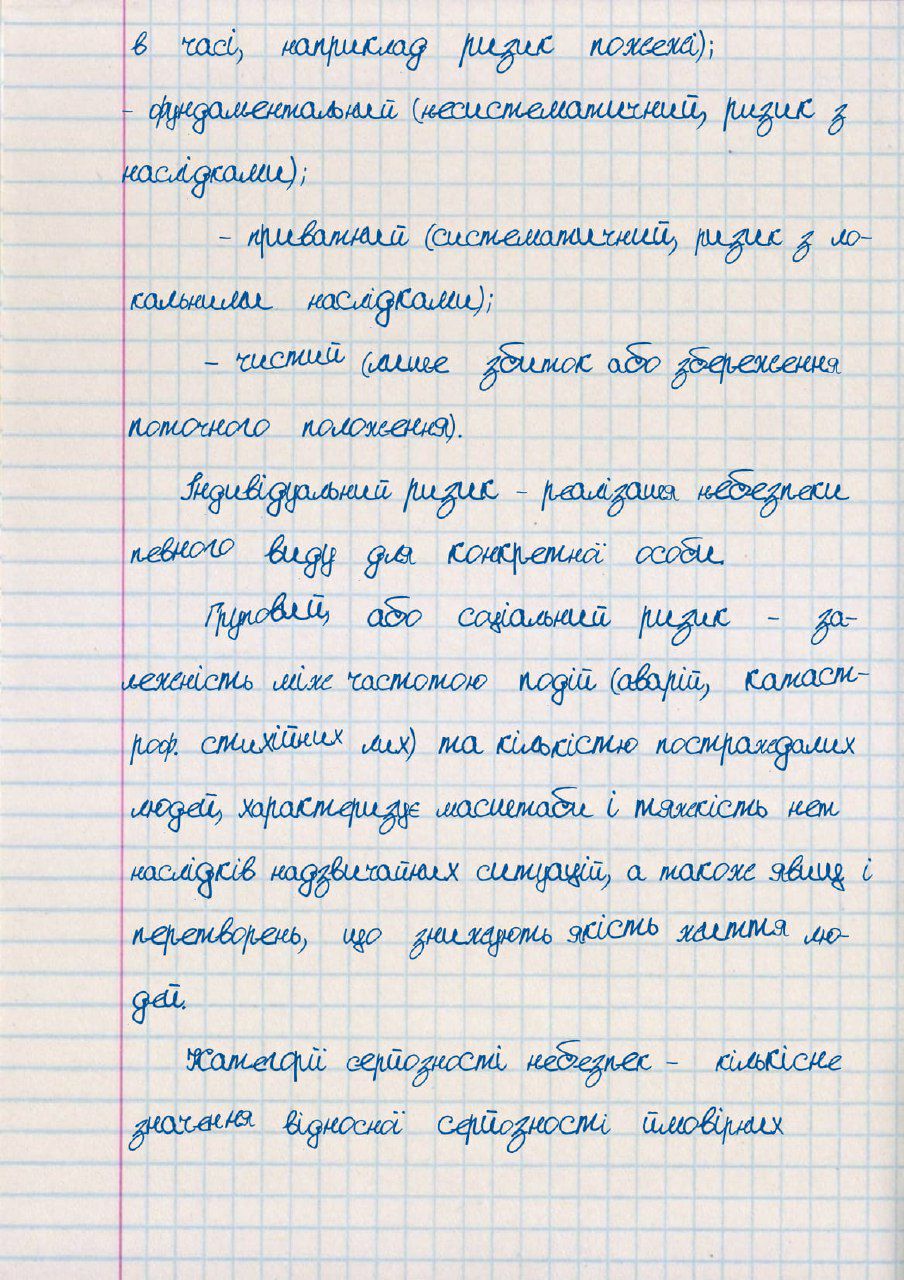 в часі, наприклад ризик пожежі);
- фундаментальний (несистематичний, ризик з
наслідками);
- приватний (систематичний, ризик з ло-
кальними наслідками);
- чистий (лише збиток або збереження
поточного положення).
Індивідуальний ризик - реалізація небезпеки
певного виду для конкретної особи.
Груповий, або соціальний ризик - за-
лежність між частотою подій (аварій, катаст-
роф. стихійних лих) та кількістю постраждалих
людей, характеризує масштаби і тяжкість нег
наслідків надзвичайних ситуацій, а також явищ і
перетворень, що знижують якість життя лю-
дей.
Категорії серйозності небезпек - кількісне
значення відносної серйозності ймовірних